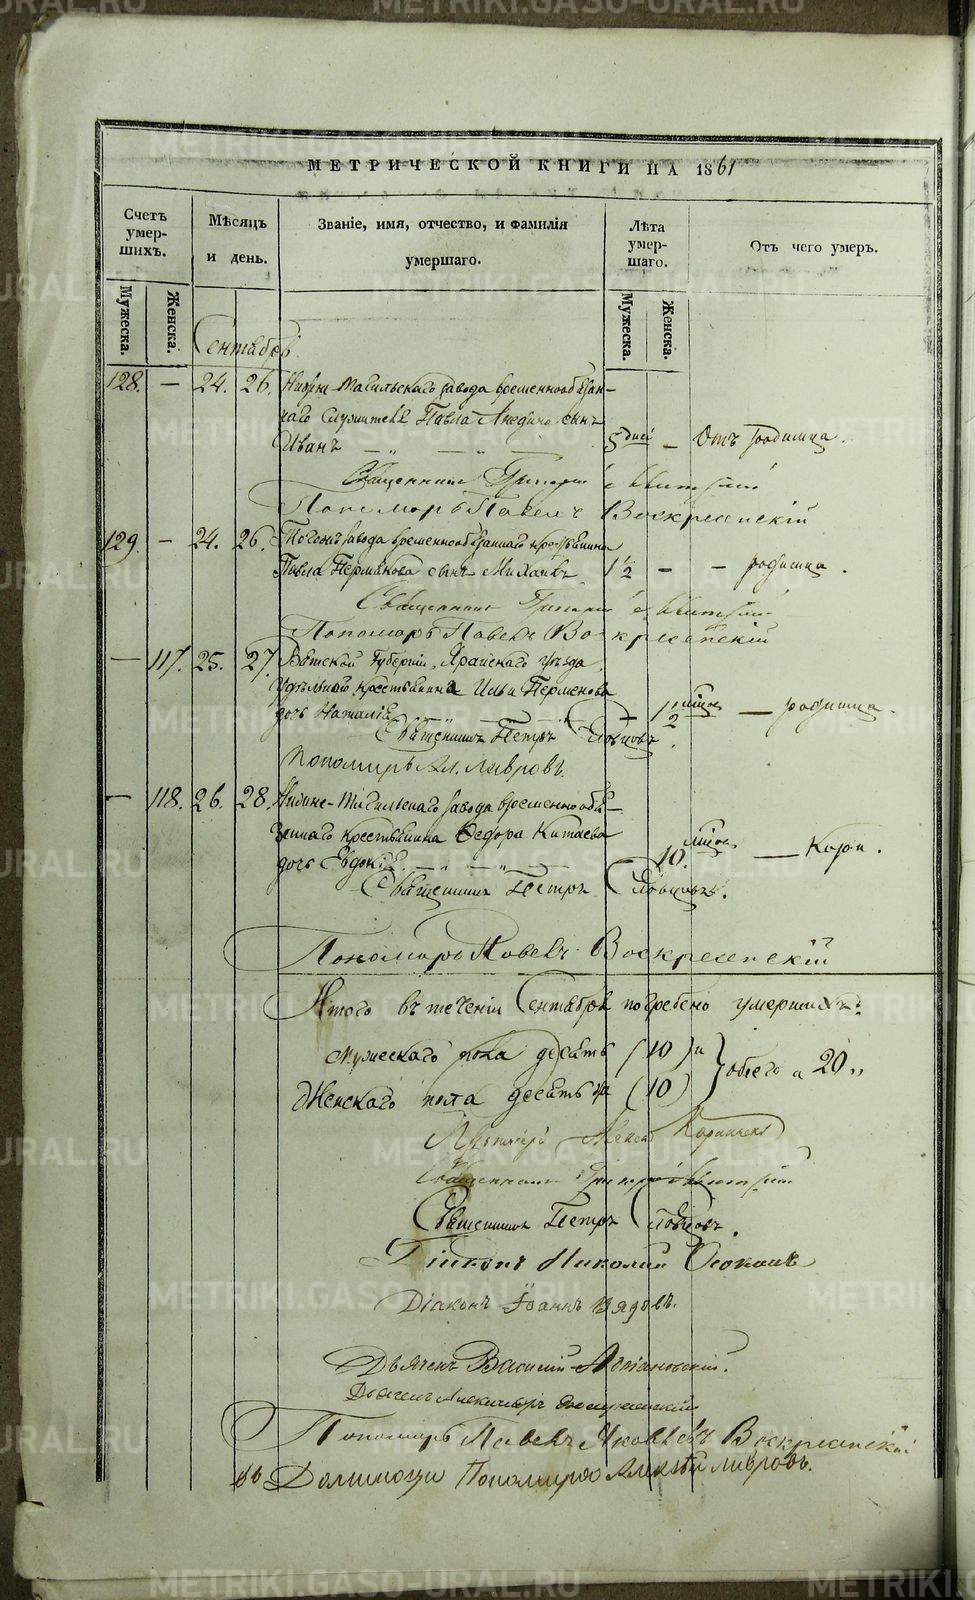 МЕТРИЧЕСКОЙ КНИГИ НА 1861
Счетъ умер-шихъ.
Мужеска.
Женска.
Мѣсяцъ и день.
Званіе, имя, отчество, и фамилія умершаго.
Лѣта умер-шаго.
Мужеска.
Женска.
Отъ чего умеръ.
Сентабрь
128. — 24. 26. Нижне-Тагильскаго завода временнообязан-
наго Служителя Павла сынъ
Иванъ — „ — „ — 5 дней — Отъ родимца.
Священникъ Григорій
Пономарь Павелъ Воскресенскій
129. — 24. 26. Тогожъ завода временнообязаннаго крестьянина
Павла Перманова сынъ Михаилъ 1 1/2 — — родимца.
Священникъ Григорій
Пономарь Павелъ Воскресенскій
— 117. 25. 27. Вятской Губерніи, уѣзда
Удѣльнаго крестьянина Ильи Перменова
дочь Наталія — 1/2 мѣсяц. — родимца.
Священникъ Петръ Словцовъ.
Пономарь Ал. Лавровъ.
— 118. 26. 28. Нижне-Тагильскаго завода временнообя-
заннаго крестьянина Ѳедора Китаева
дочь Евдокія — „ — „ — 10. мѣсяц. — Кори.
Священникъ Петръ Словцовъ.
Пономарь Павелъ Воскресенскій
Итого въ теченіи Сентабря погребено умершихъ:
Мужескаго пола десять (10) и
Женскаго пола десять (10) } обоего 20 „
Священникъ Григорій
Священникъ Петръ Словцовъ.
Діаконъ Николай
Діаконъ Іоаннъ Удовъ.
Дьячекъ Василій
Дьячекъ Александръ
Пономарь Павелъ Яковлевъ Воскресенскій
Пономаря Алексѣй Лавровъ.
METRIKI.GASO-URAL.RU